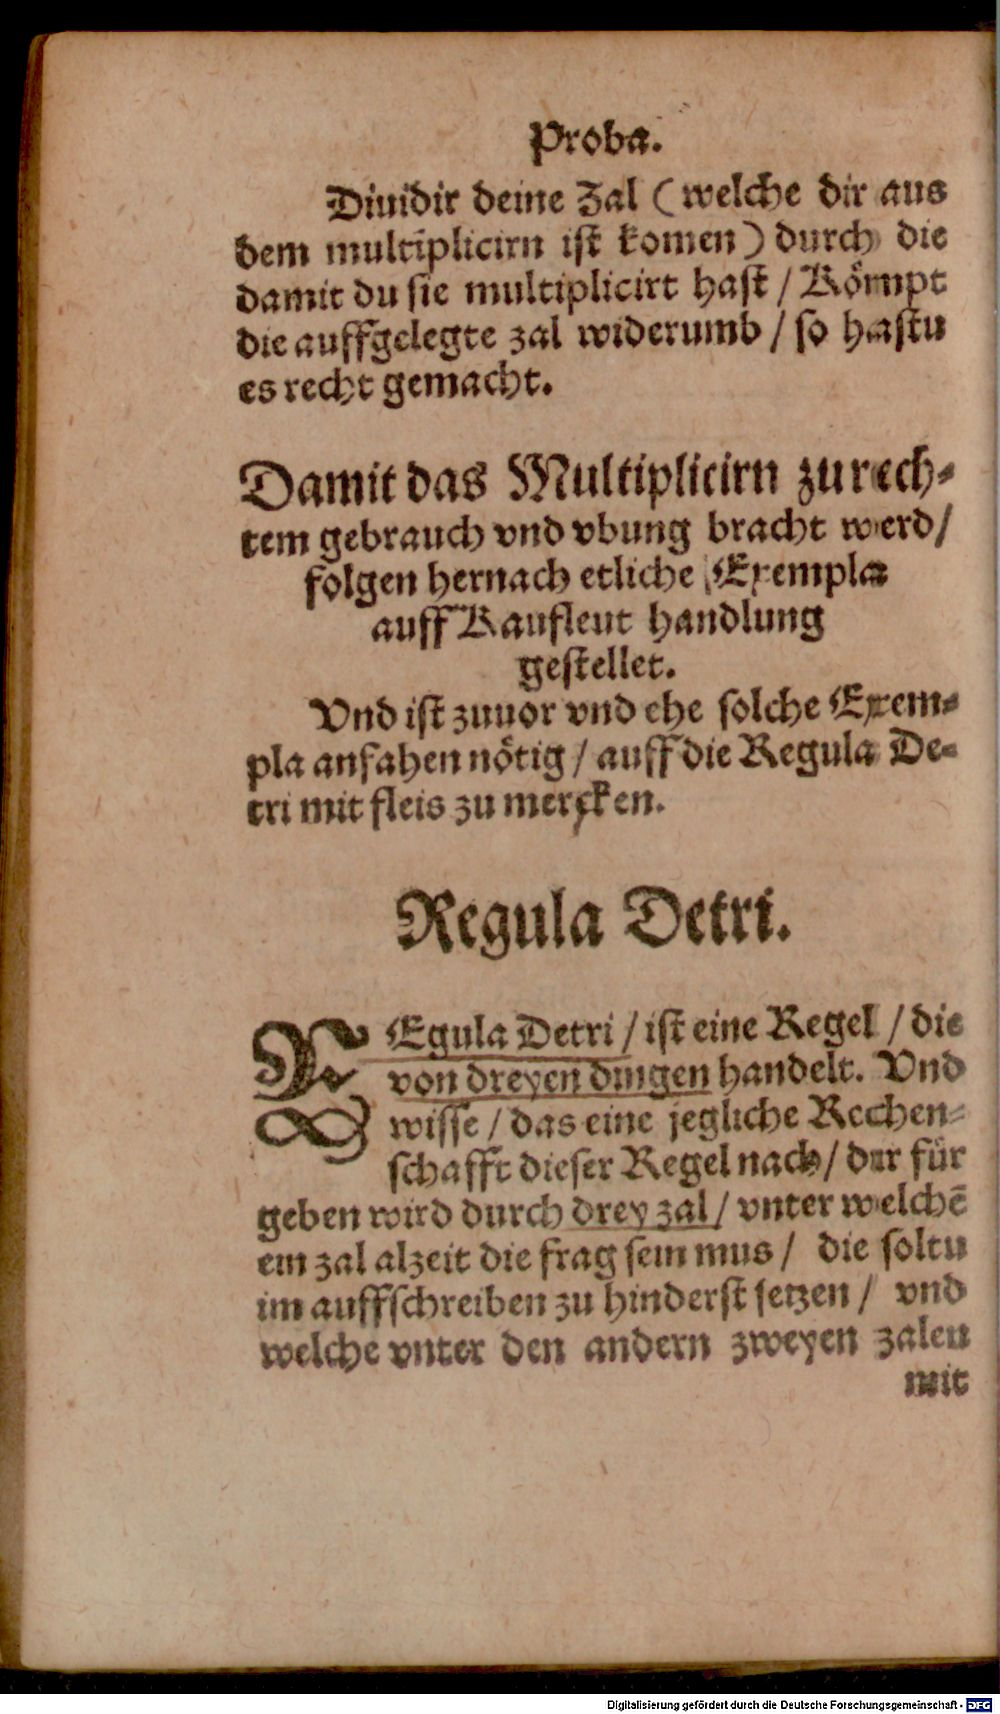 Proba.
Diuidir deine Zal (welche dir aus
dem multiplicirn ist komen) durch die
damit du sie multiplicirt hast / Kömpt
die auffgelegte zal widerumb / so hastu
es recht gemacht.
Damit das Multiplicirn zu rech-
tem gebrauch vnd vbung bracht werd /
folgen hernach etliche Exempla
auff Kaufleut handlung
gestellet.
Vnd ist zuuor vnd ehe solche Exem-
pla anfahen nötig / auff die Regula De-
tri mit fleis zu mercken.
Regula Detri.
REgula Detri / ist eine Regel / die
von dreyen dingen handelt. Vnd
wisse / das eine jegliche Rechen-
schafft dieser Regel nach / dir für
geben wird durch drey zal / vnter welchē
ein zal alzeit die frag sein mus / die soltu
im auffschreiben zu hinderst setzen / vnd
welche vnter den andern zweyen zalen
mit
Digitalisierung gefördert durch die Deutsche Forschungsgemeinschaft - DFG